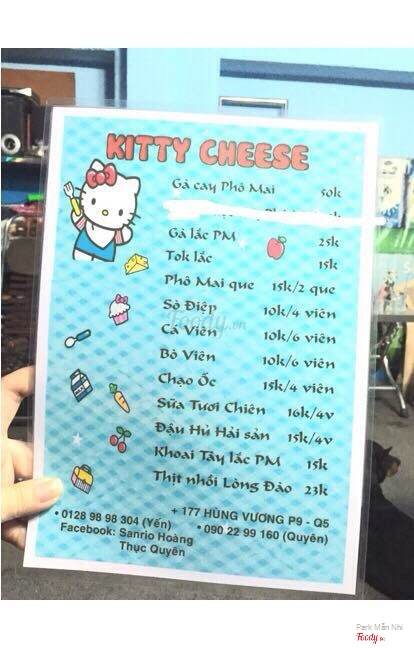 KITTY CHEESE
Gà cay Phô Mai 50k
Gà lắc PM 25k
Tok lắc 15k
Phô Mai que 15k/2 que
Sò Điệp 10k/4 viên
Foody.vn
Cá Viên 10k/6 viên
Bò Viên 10k/6 viên
Chạo Ốc 15k/4 viên
Sữa Tươi Chiên 16k/4v
Đậu Hủ Hải sản 15k/4v
Khoai Tây lắc PM 15k
Thịt nhồi Lòng Đào 23k
+ 177 HÙNG VƯƠNG P9 - Q5
• 0128 98 98 304 (Yến) • 090 22 99 160 (Quyên)
Facebook: Sanrio Hoàng
Thục Quyên
Park Mẫn Nhi
Foody.vn